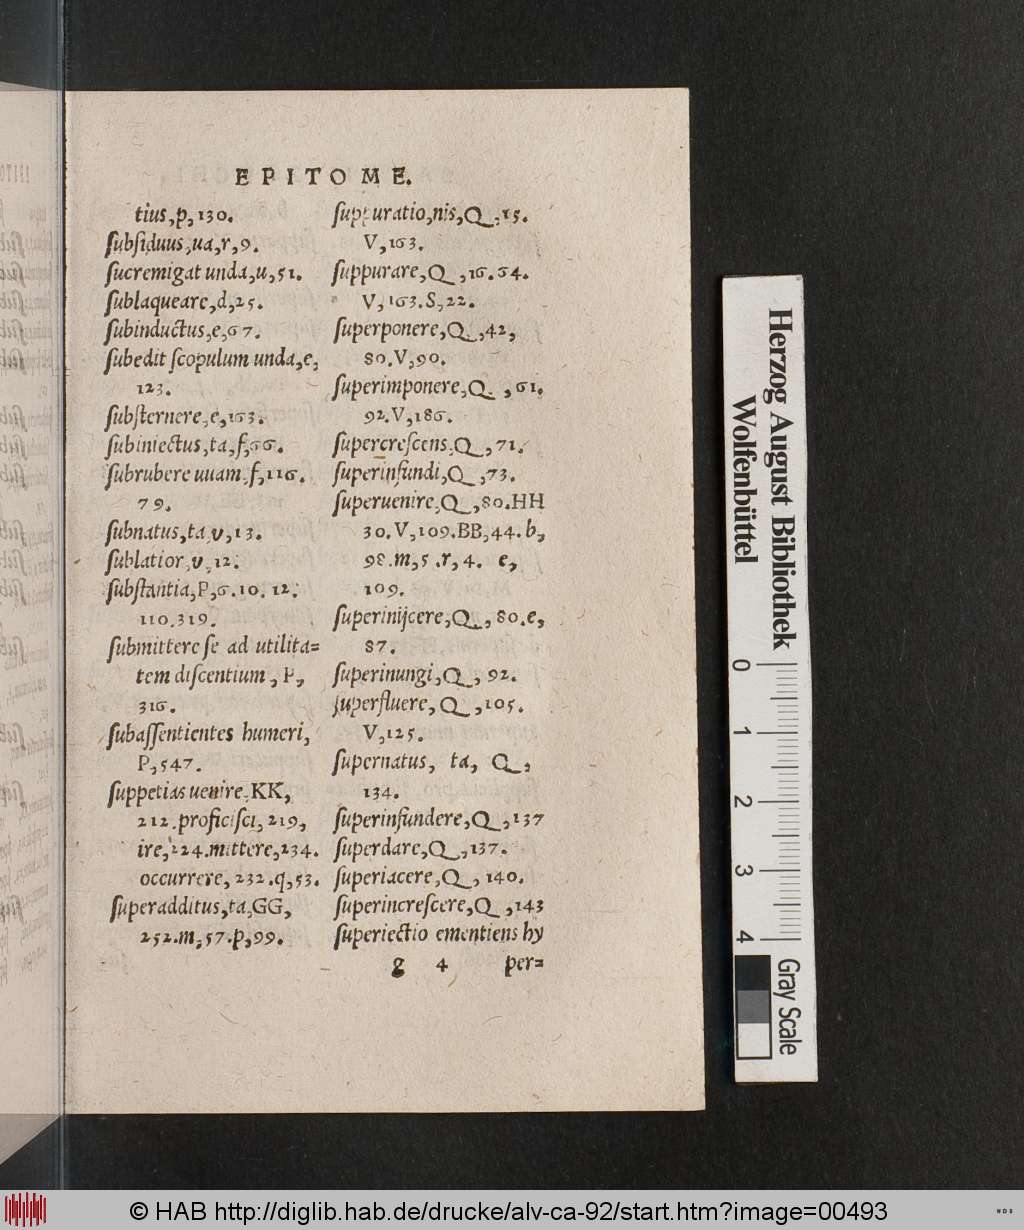 EPITOME.
tius,p,130.
ſubſiduus,ua,r,9.
ſucremigat unda,u,51.
ſublaqueare,d,25.
ſubinductus,e,67.
ſubedit ſcopulum unda,e,
123.
ſubſternere,e,163.
ſubiniectus,ta,f,66.
ſubrubere uuam,f,116.
79.
ſubnatus,ta,v,13.
ſublatior,v,12.
ſubſtantia,P,6.10.12.
110.319.
ſubmittere ſe ad utilita=
tem diſcentium, P,
316.
ſubaſſentientes humeri,
P,547.
ſuppetias uenire,KK,
212.proficiſci,219,
ire,224.mittere,234.
occurrere,232.q,53.
ſuperadditus,ta,GG,
252.m,57.p,99.
ſuppuratio,nis,Q,15.
V,163.
ſuppurare,Q,16.64.
V,163.S,22.
ſuperponere,Q,42,
80.V,90.
ſuperimponere,Q,61.
92.V,186.
ſupercreſcens,Q,71.
ſuperinfundi,Q,73.
ſuperuenire,Q,80.HH
30.V,109.BB,44.b,
98.m,5.r,4. e,
109.
ſuperinijcere,Q,80.e,
87.
ſuperinungi,Q,92.
ſuperfluere,Q,105.
V,125.
ſupernatus, ta, Q,
134.
ſuperinfundere,Q,137
ſuperdare,Q,137.
ſuperiacere,Q,140.
ſuperincreſcere,Q,143
ſuperiectio ementiens hy
g 4 per=
Herzog August Bibliothek
Wolfenbüttel
0 1 2 3 4
Gray Scale
© HAB http://diglib.hab.de/drucke/alv-ca-92/start.htm?image=00493